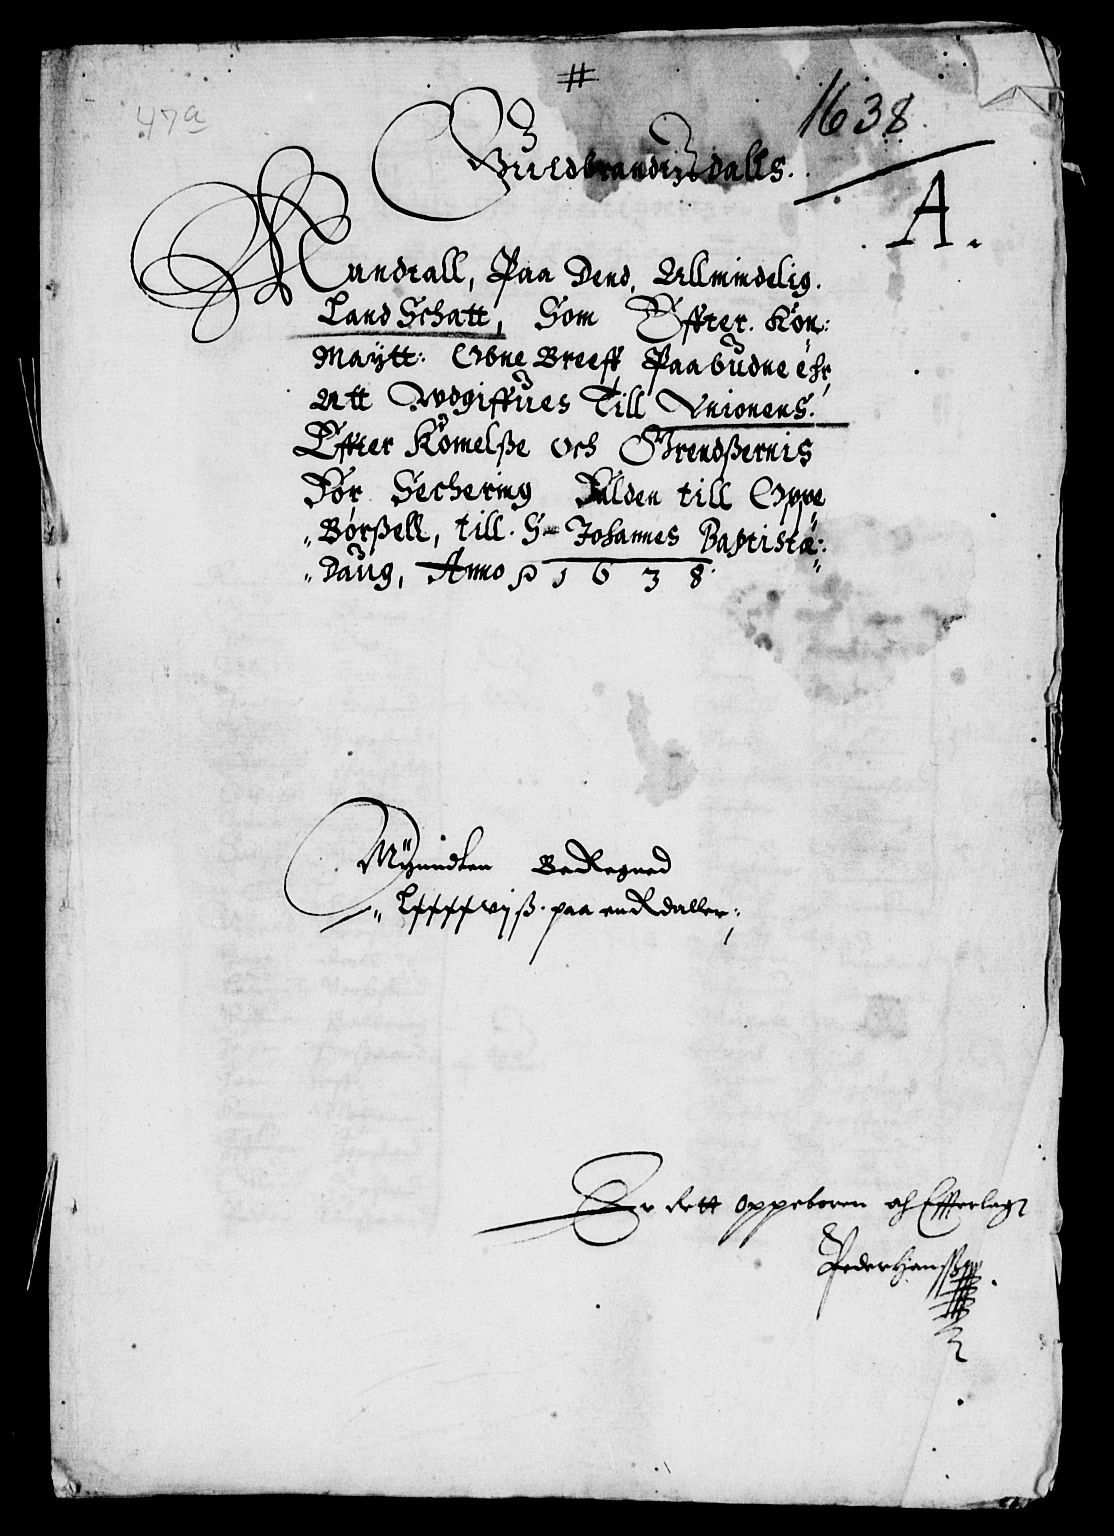 47a
#
1638
Guldbrandtzdalls.
A.
Mandtall, Paa Dend, Allmindelig.
Land Schatt, Som Effter. Kon:
Maÿtt: Obne Breeff Paabudne ehr,
Att Wdgiffues Till Vnionens.
Effter Komelße och Grendßernis
For Sechering Falden till Oppe
"Børßell, till. S- Johannes Baptistæ:
"Daug, Anno 1638.
Mÿnndten Beregned
paa en Rdaller;
Er Rett oppeboren och Effterlagt
Peder Hanß